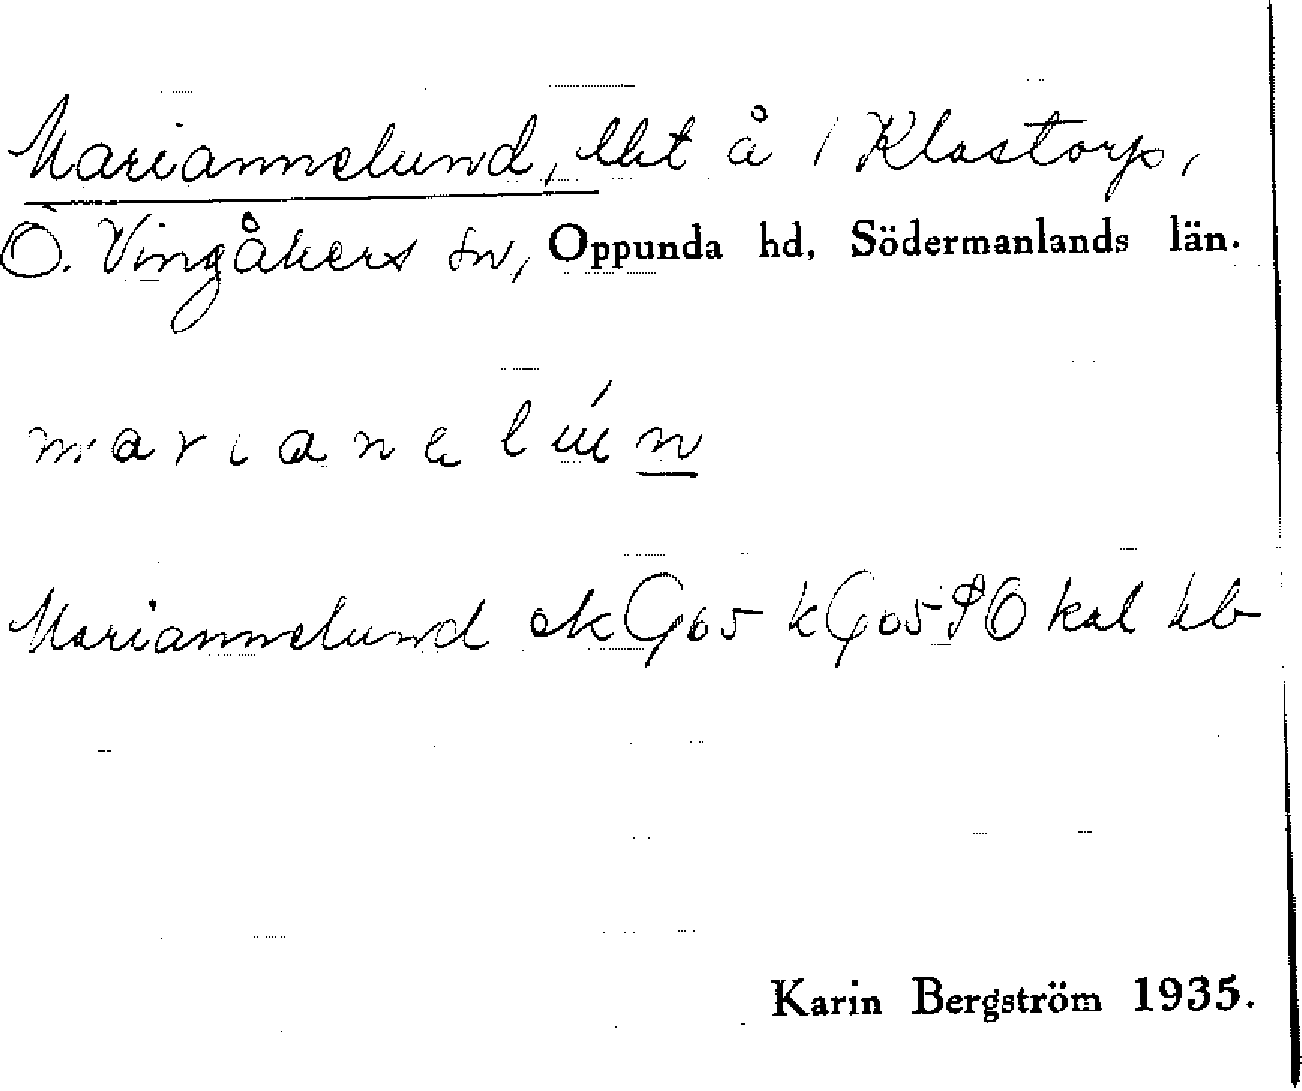 Mariannelund, lht å 1 Klastorp,
Ö. Vingåkers sn, Oppunda hd, Södermanlands län.
marianelún
Mariannelund ek G 65 k G 05 PO kal hb
Karin Bergström 1935.